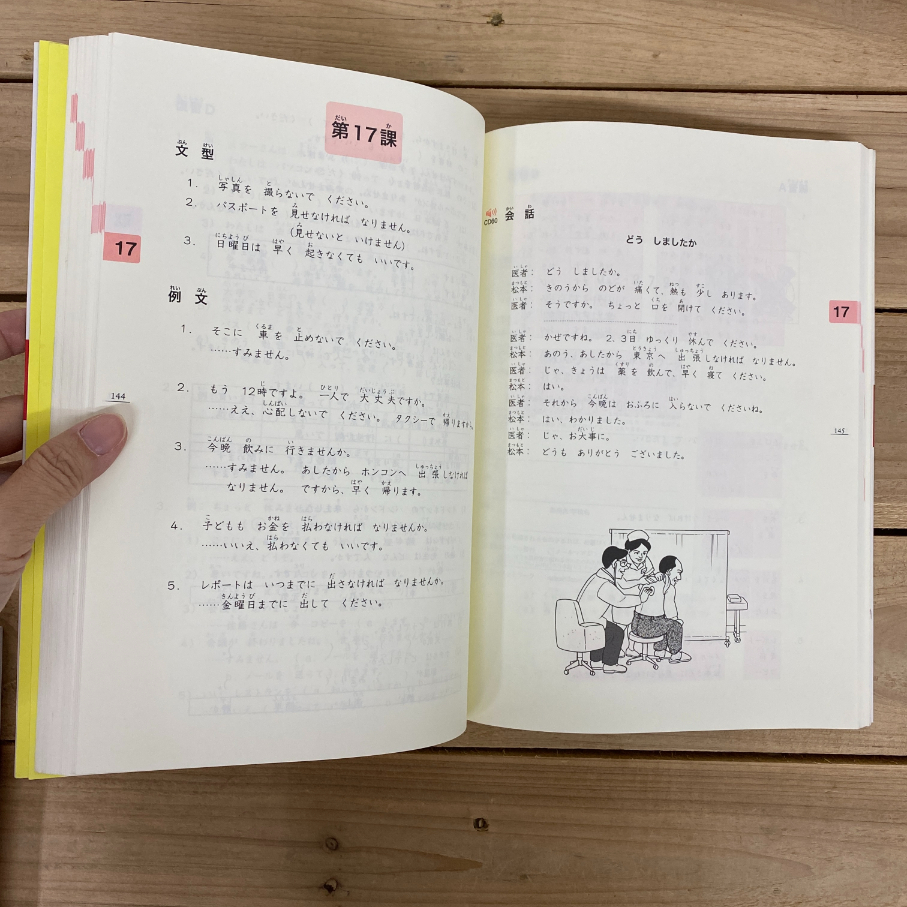 第17課
文型
1. 写真を 撮らないで ください。
2. パスポートを 見せなければ なりません。
(見せないと いけません)
3. 日曜日は 早く 起きなくても いいです。
17
例文
1. そこに 車を 止めないで ください。
……すみません。
2. もう 12時ですよ。 一人で 大丈夫ですか。
……ええ、心配しないで ください。 タクシーで 帰りますから。
144
3. 今晩 飲みに 行きませんか。
……すみません。 あしたから ホンコンへ 出張しなければ
なりません。 ですから、早く 帰ります。
4. 子どもも お金を 払わなければ なりませんか。
……いいえ、払わなくても いいです。
5. レポートは いつまでに 出さなければ なりませんか。
……金曜日までに 出して ください。
CD60 会話
どう しましたか
医者: どう しましたか。
松本: きのうから のどが 痛くて、熱も 少し あります。
医者: そうですか。 ちょっと 口を 開けて ください。
17
医者: かぜですね。 2、3日 ゆっくり 休んで ください。
松本: あのう、あしたから 東京へ 出張しなければ なりません。
医者: じゃ、きょうは 薬を 飲んで、早く 寝て ください。
松本: はい。
医者: それから 今晩は おふろに 入らないで くださいね。
松本: はい、わかりました。
医者: じゃ、お大事に。
松本: どうも ありがとう ございました。
145